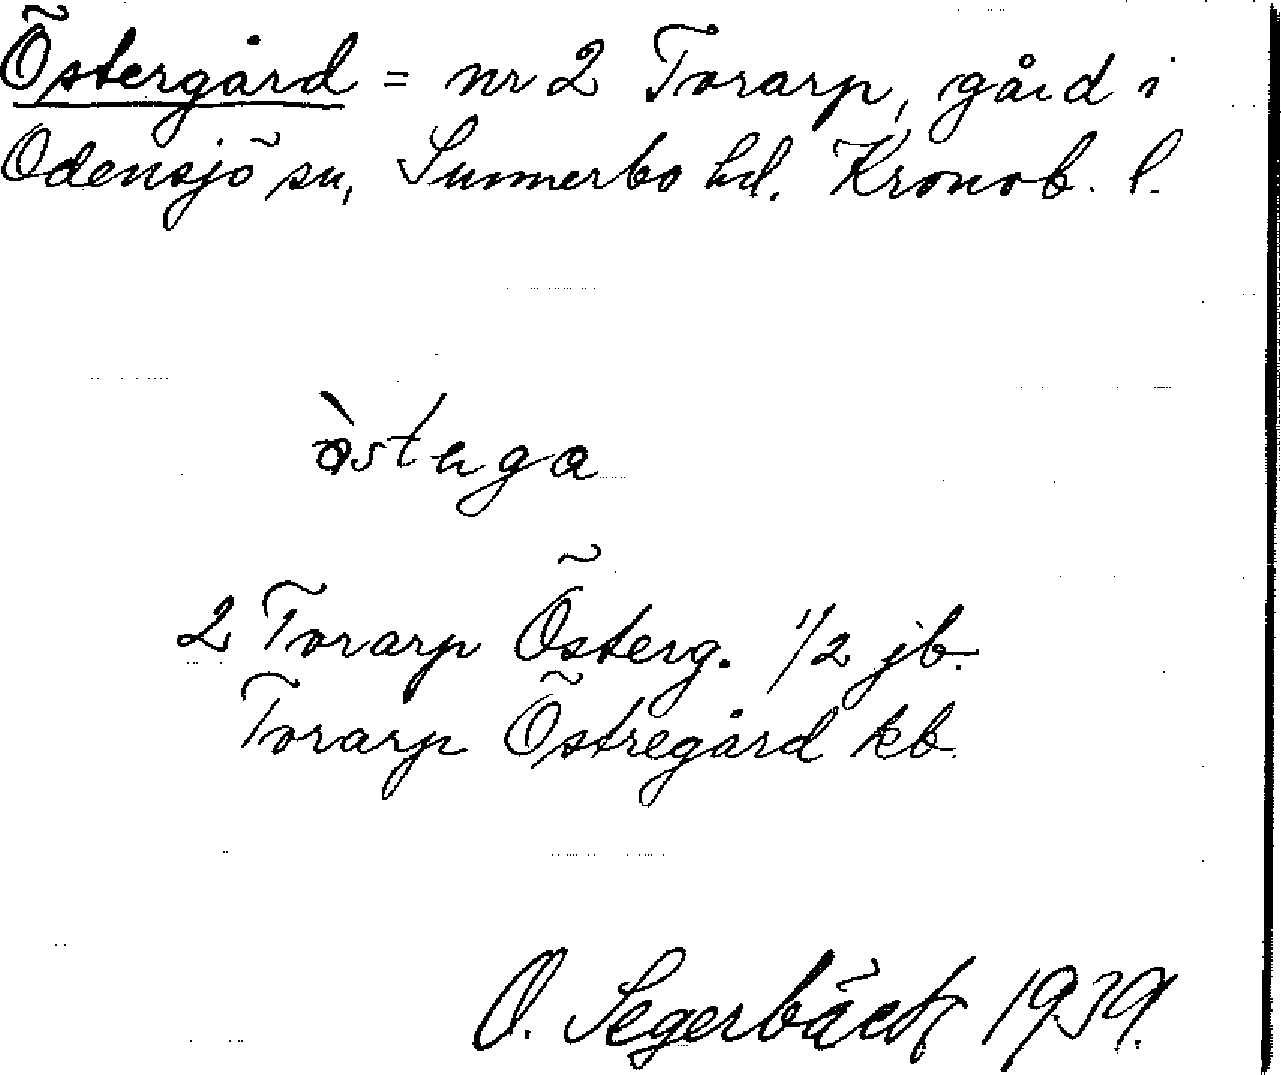 Östergård = nr 2 Torarp, gård i
Odensjö sn, Sunnerbo hd. Kronob. l.
2 Torarp Österg. 1/2 jb.
Torarp Östregård kb.
O. Segerbäck 1939.